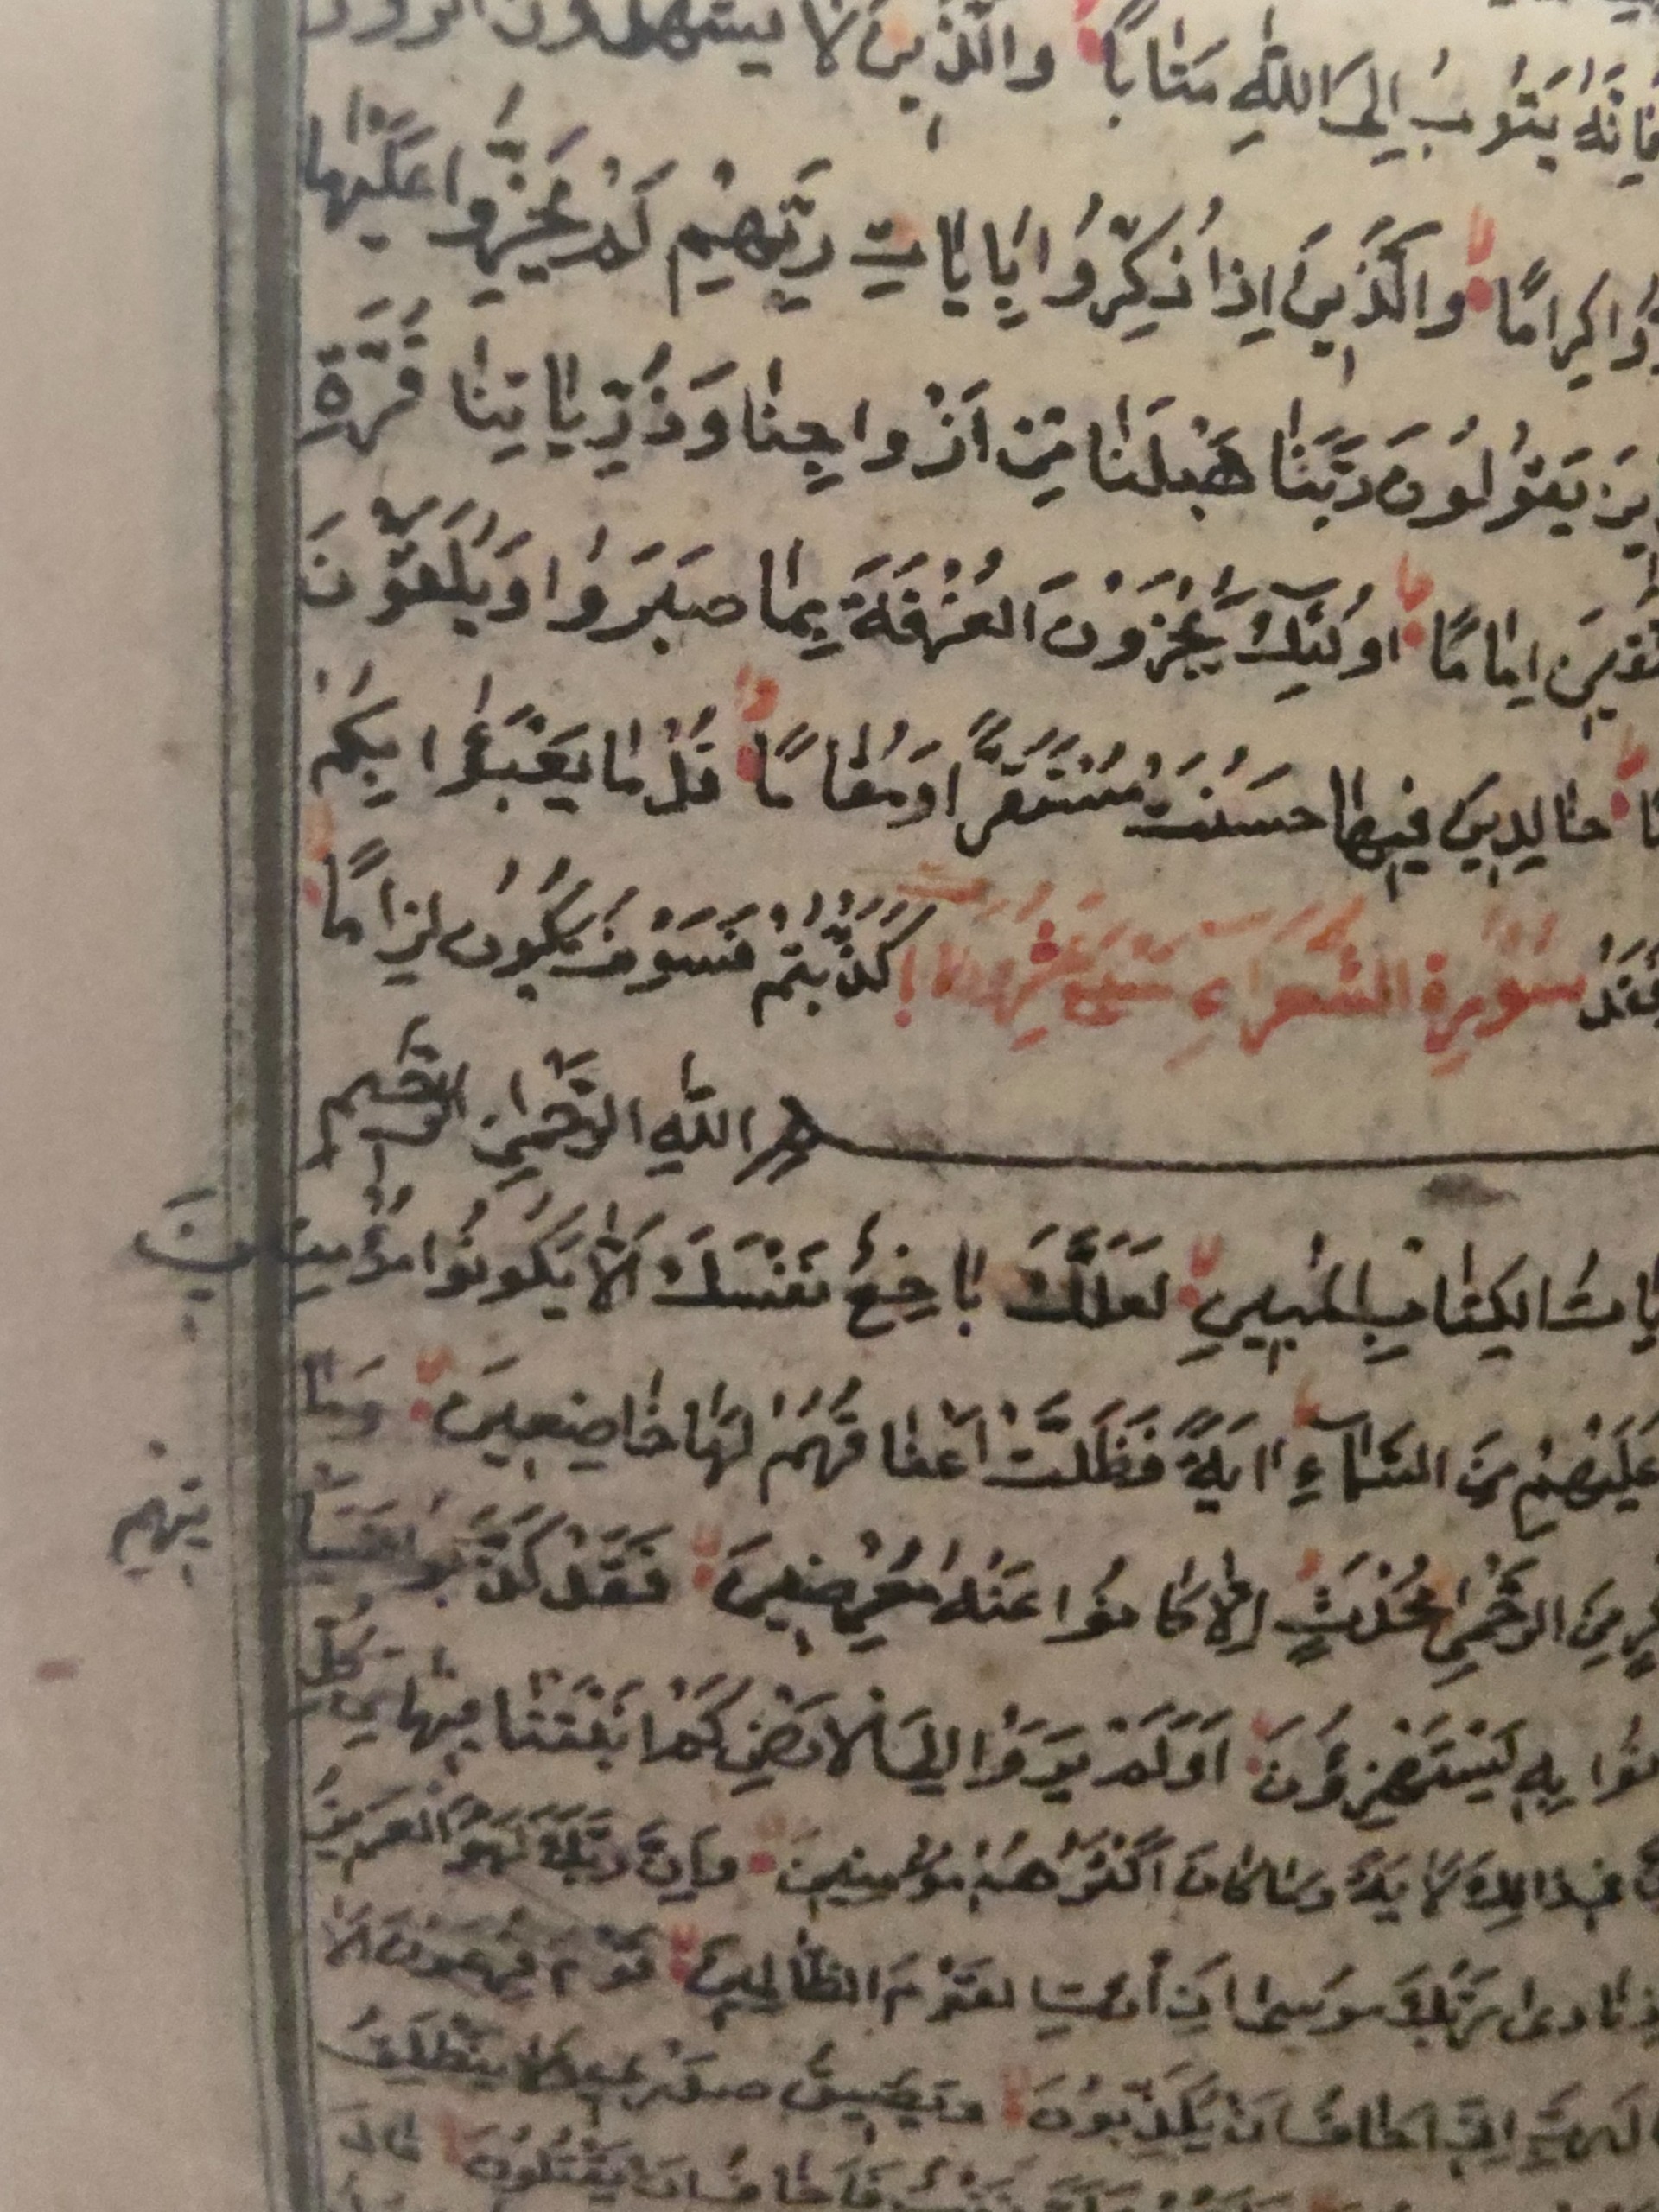 فَاِنَّهُ يَتُوبُ اِلَى اللّٰهِ مَتٰابًا وَالَّذِينَ لَا يَشْهَدُونَ الزُّورَ
وا كِرٰامًا وَالَّذِينَ اِذٰا ذُكِّرُوا بِاٰيٰاتِ رَبِّهِمْ لَمْ يَخِرُّوا عَلَيْهٰا
ينَ يَقُولُونَ رَبَّنٰا هَبْ لَنٰا مِنْ اَزْوٰاجِنٰا وَذُرِّيّٰاتِنٰا قُرَّةَ
تَّقِينَ اِمٰامًا اُولٰٓئِكَ يُجْزَوْنَ الْغُرْفَةَ بِمٰا صَبَرُوا وَيُلَقَّوْنَ
خٰالِدِينَ فِيهٰا حَسُنَتْ مُسْتَقَرًّا وَمُقٰامًا قُلْ مٰا يَعْبَؤُا بِكُمْ
فَقَدْ كَذَّبْتُمْ فَسَوْفَ يَكُونُ لِزٰامًا
سُورَةُ الشُّعَرٰاءِ
بسم اللّٰهِ الرَّحْمٰنِ الرَّحِيمِ
يٰاتُ الْكِتٰابِ الْمُبِينِ لَعَلَّكَ بٰاخِعٌ نَفْسَكَ اَلّٰا يَكُونُوا مُؤْمِنِينَ
عَلَيْهِمْ مِنَ السَّمٰٓاءِ اٰيَةً فَظَلَّتْ اَعْنٰاقُهُمْ لَهٰا خٰاضِعِينَ وَمٰا
يَأْتِيهِمْ
رٍ مِنَ الرَّحْمٰنِ مُحْدَثٍ اِلّٰا كٰانُوا عَنْهُ مُعْرِضِينَ فَقَدْ كَذَّبُوا فَسَيَا
نُوا بِهِ يَسْتَهْزِؤُنَ اَوَلَمْ يَرَوْا اِلَى الْاَرْضِ كَمْ اَنْبَتْنٰا فِيهٰا مِنْ كُلِّ
فِي ذٰلِكَ لَاٰيَةً وَمٰا كٰانَ اَكْثَرُهُمْ مُؤْمِنِينَ وَاِنَّ رَبَّكَ لَهُوَ الْعَزِيزُ
نٰادىٰ رَبُّكَ مُوسىٰ اَنِ ائْتِ الْقَوْمَ الظّٰالِمِينَ قَوْمَ فِرْعَوْنَ اَلٰا
اِنِّي اَخٰافُ اَنْ يُكَذِّبُونِ وَيَضِيقُ صَدْرِي وَلٰا يَنْطَلِقُ
فَاَخٰافُ اَنْ يَقْتُلُونِ قٰالَ